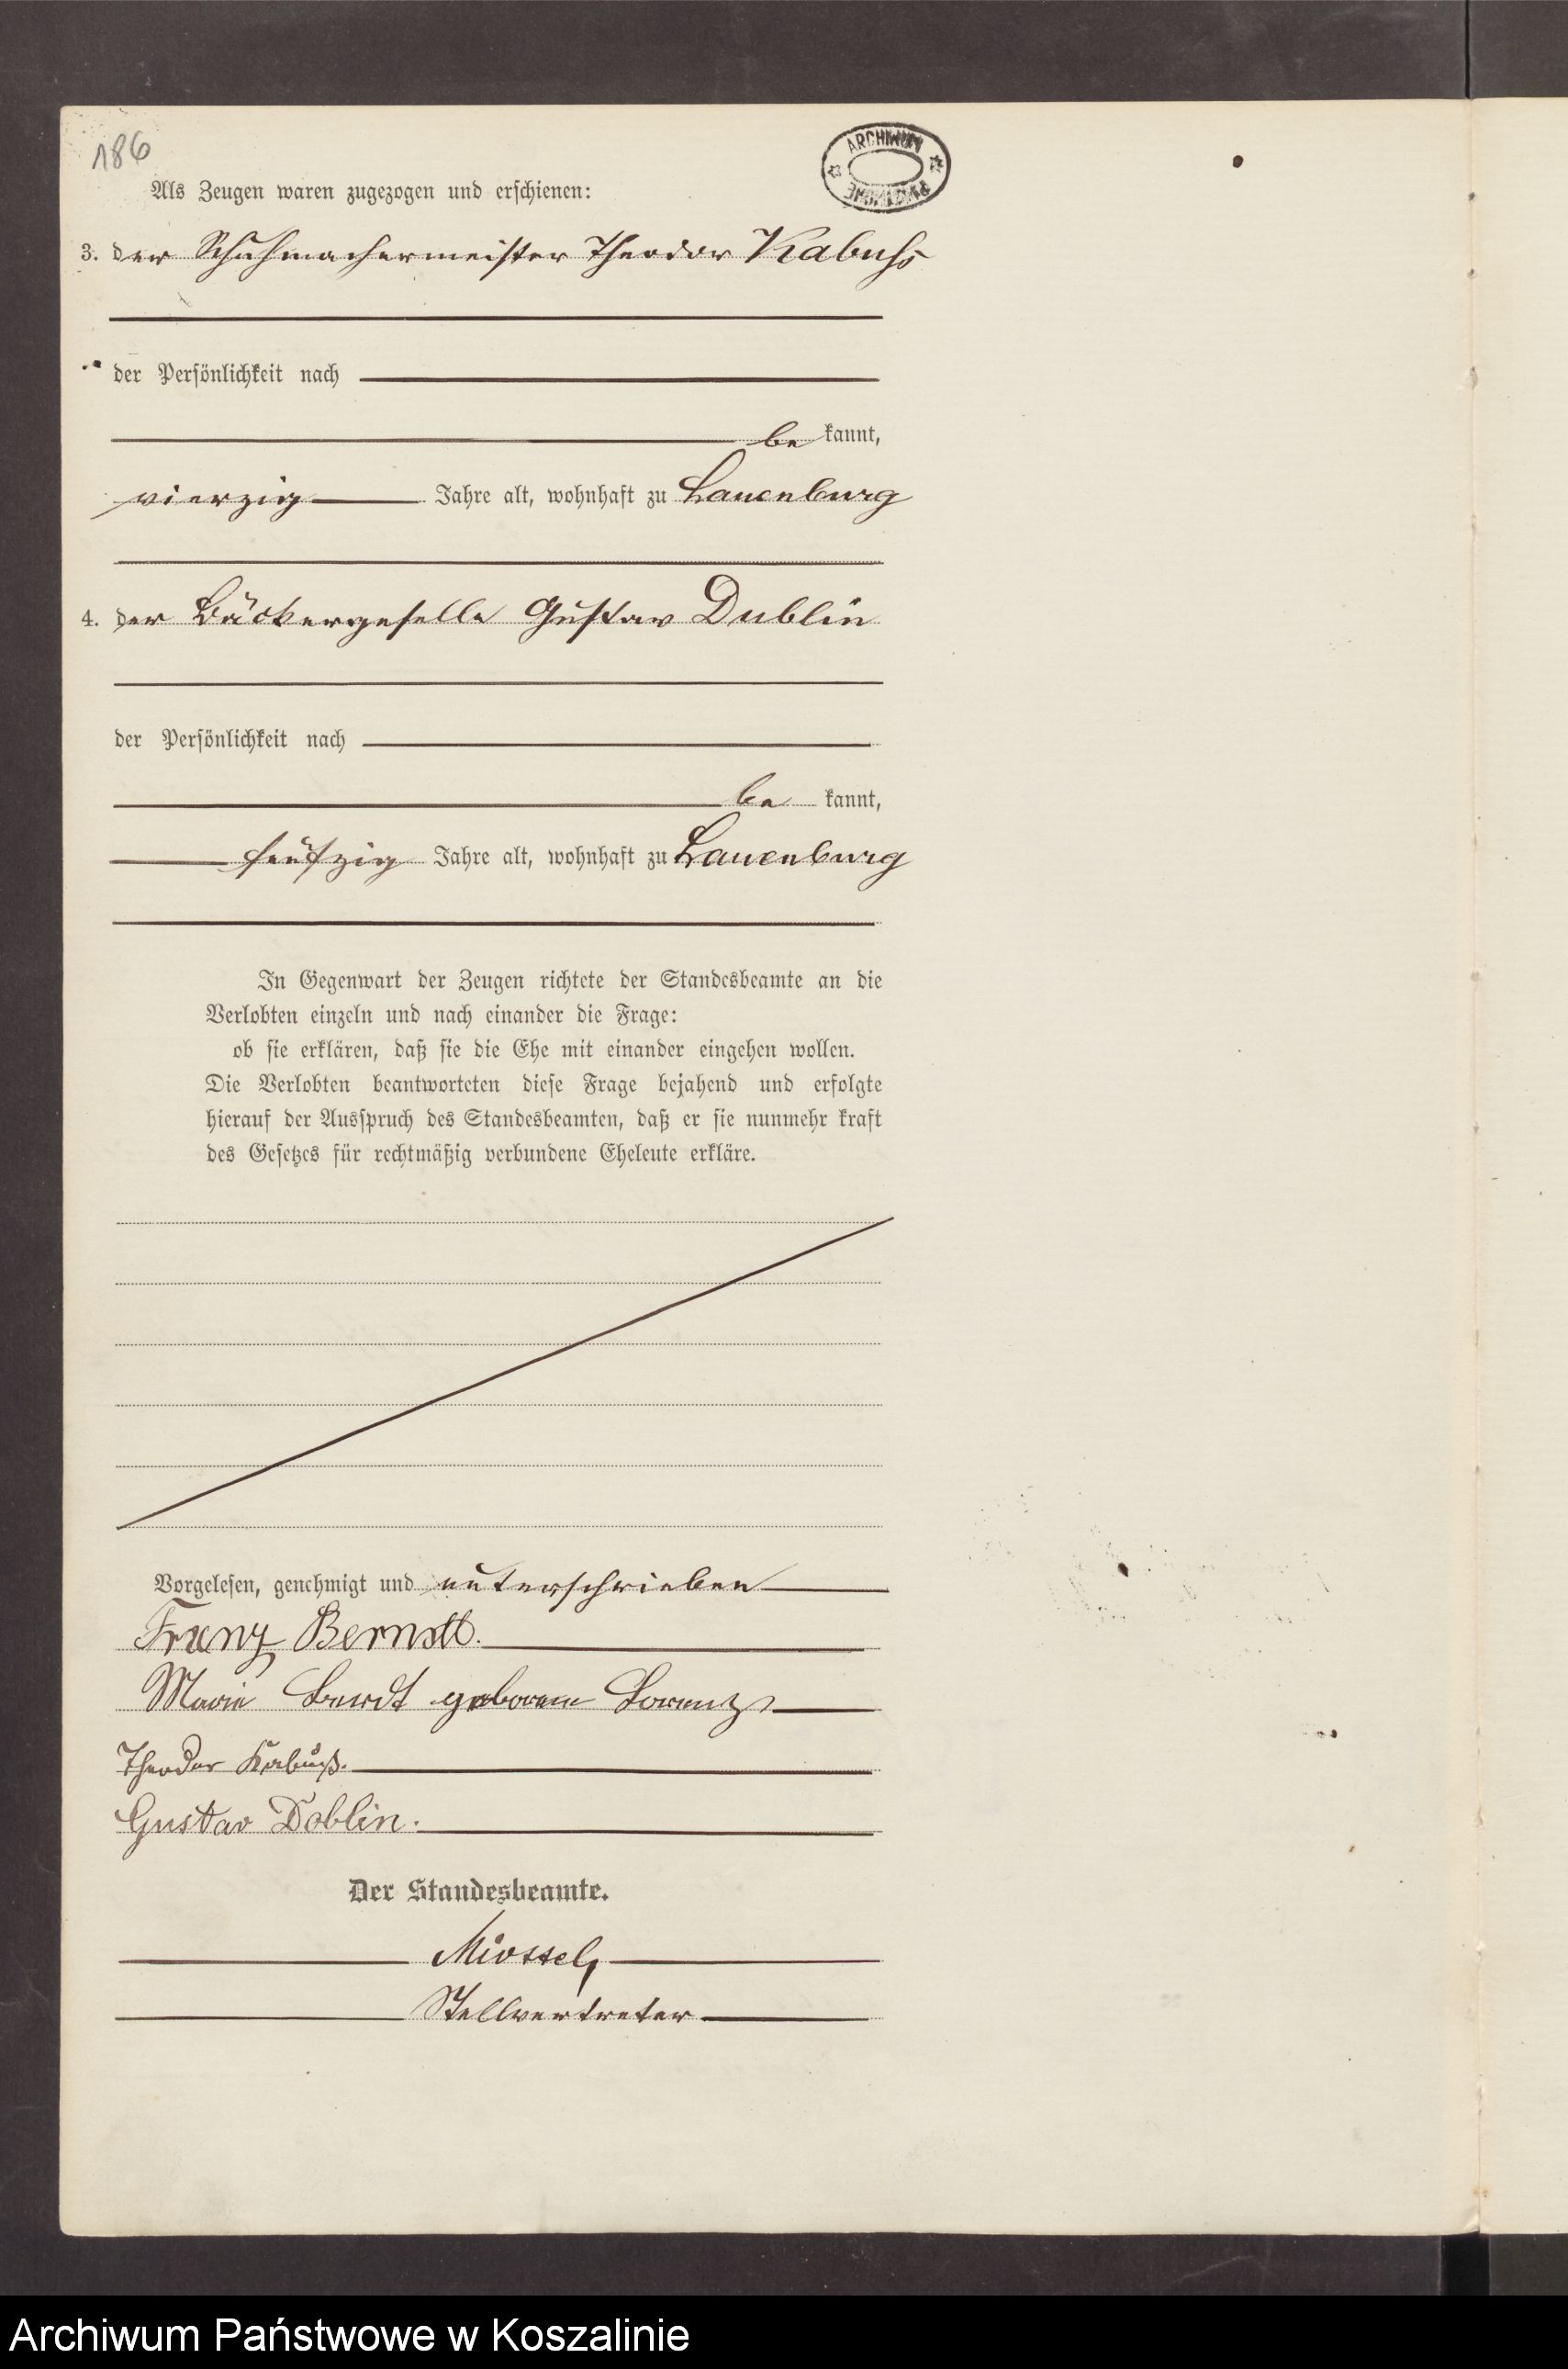 186
ARCHIWUM
PAŃSTWOWE
Als Zeugen waren zugezogen und erschienen:
3. der Schuhmachermeister Theodor Kabuhs
der Persönlichkeit nach
be kannt,
vierzig Jahre alt, wohnhaft zu Lauenburg
4. der Bäckergeselle Gustav Dublin
der Persönlichkeit nach
be kannt,
fünfzig Jahre alt, wohnhaft zu Lauenburg
In Gegenwart der Zeugen richtete der Standesbeamte an die
Verlobten einzeln und nach einander die Frage:
ob sie erklären, daß sie die Ehe mit einander eingehen wollen.
Die Verlobten beantworteten diese Frage bejahend und erfolgte
hierauf der Ausspruch des Standesbeamten, daß er sie nunmehr kraft
des Gesetzes für rechtmäßig verbundene Eheleute erkläre.
Vorgelesen, genehmigt und unterschrieben
Franz
Marie geborene Lorenz
Theodor Kabuß.
Gustav Doblin.
Der Standesbeamte.
Stellvertreter
Archiwum Państwowe w Koszalinie